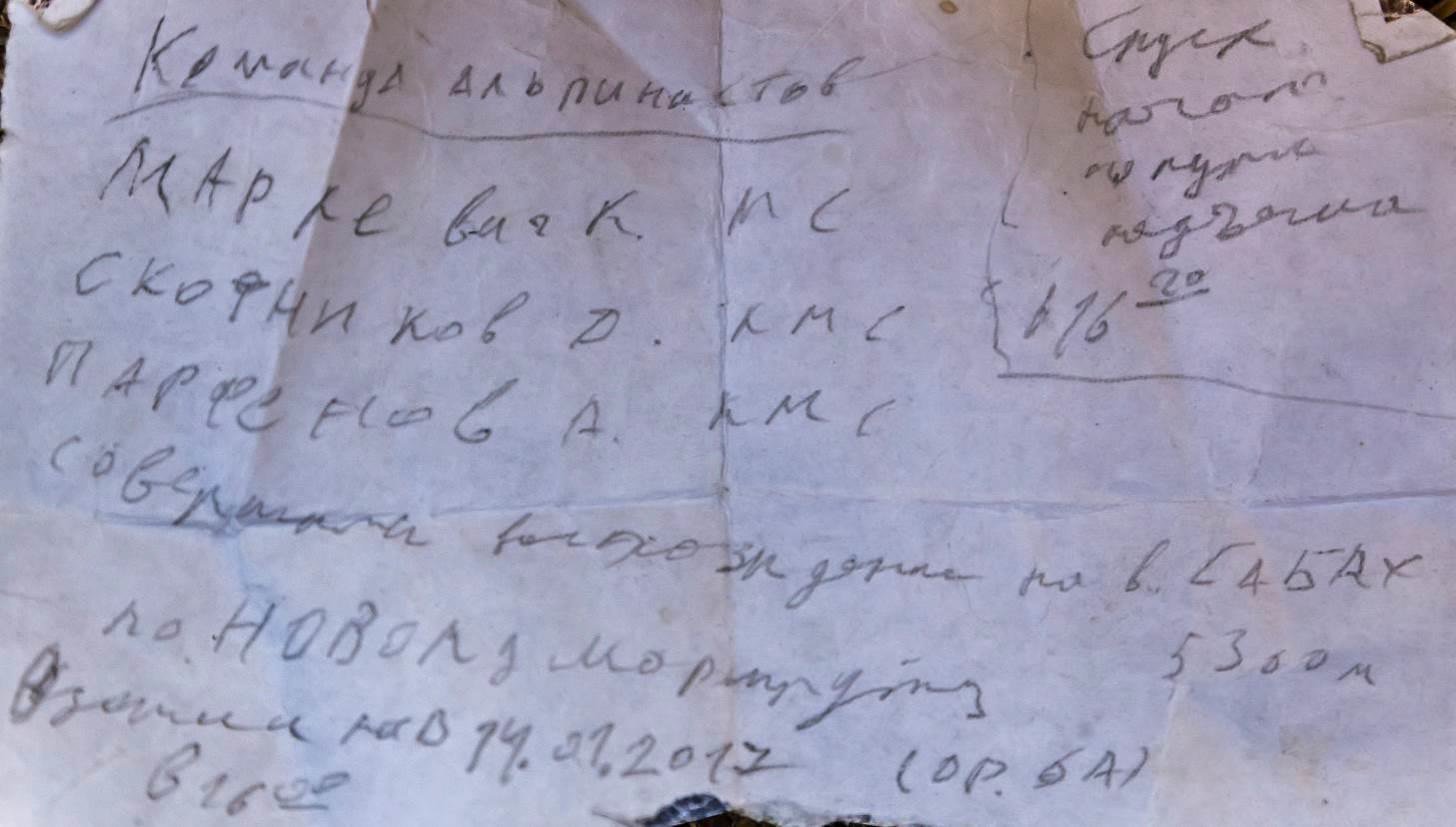 Команда альпинистов
Маркевич К. МС
Скорняков Д. КМС
Парфенов А. КМС
совершили восхождение на в. САБАХ
по НОВОМУ маршруту 5300 м
Взошли на В 14.01.2017 (ор. 6А)
в 16 00
Спуск
начат
по пути
подъема
в 16 20